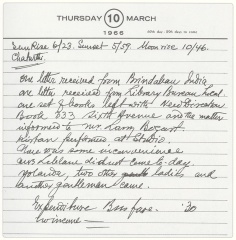 THURSDAY 10 MARCH
1966
Sun Rise 6/23. Sunset 5/59. Moonrise 10/46.
one letter received from Brindaban India
one letter received from Library Bureau Local.
one set of books left with New Directions
Book 333 Sixth Avenue and the matter
informed to Mr.
performed at Studio
There was some inconvenience
did not came to-day
two other ladies and
another gentleman came.
Expenditure Bus fare '30
income